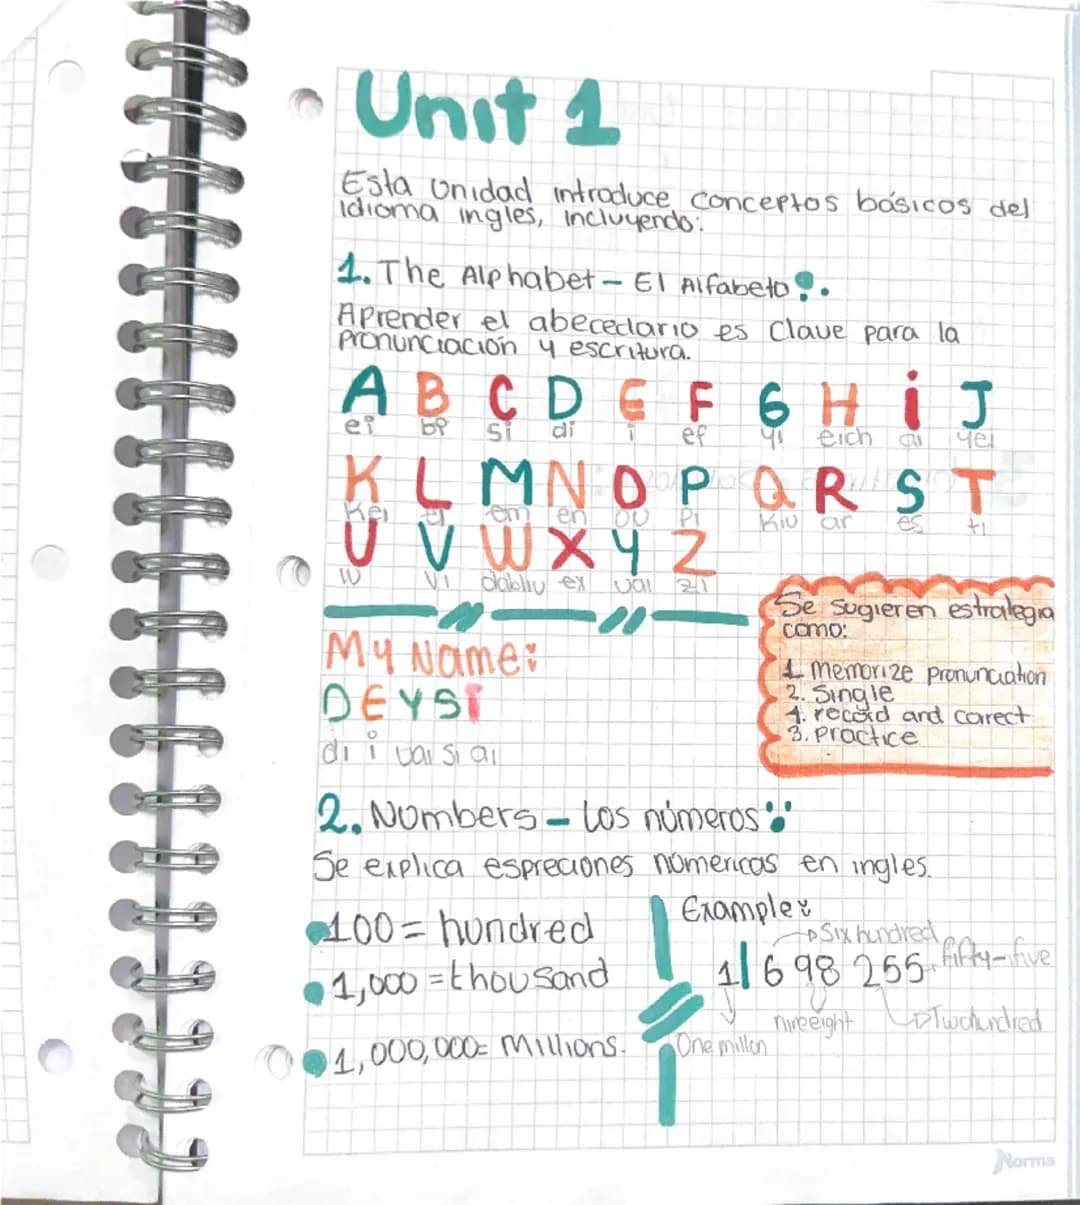 Unit 1
Esta unidad introduce conceptos básicos del
idioma ingles, incluyendo:
1. The Alphabet - El Alfabeto
Aprender el abecedario es clave para la
pronunciación y escritura.
A B C D E F G H i J
ei bi si di i ef yi eich ai yei
K L M N O P Q R S T
Kei el em en ou pi Kiu ar es ti
U V W X Y Z
iu vi dabliu ex uai zi
Se sugieren estrategia
como:
1. Memorize pronunciation
2. Single
4. record and correct
3. practice
My Name:
DEYSi
di i uai si ai
2. Numbers - Los números
Se explica espreciones númericas en ingles.
100 = hundred
1,000 = thousand
1,000,000 = Millions.
Example:
Six hundred
1/698 255 fifty-five
nineeight Two hundred
One millon
Norma